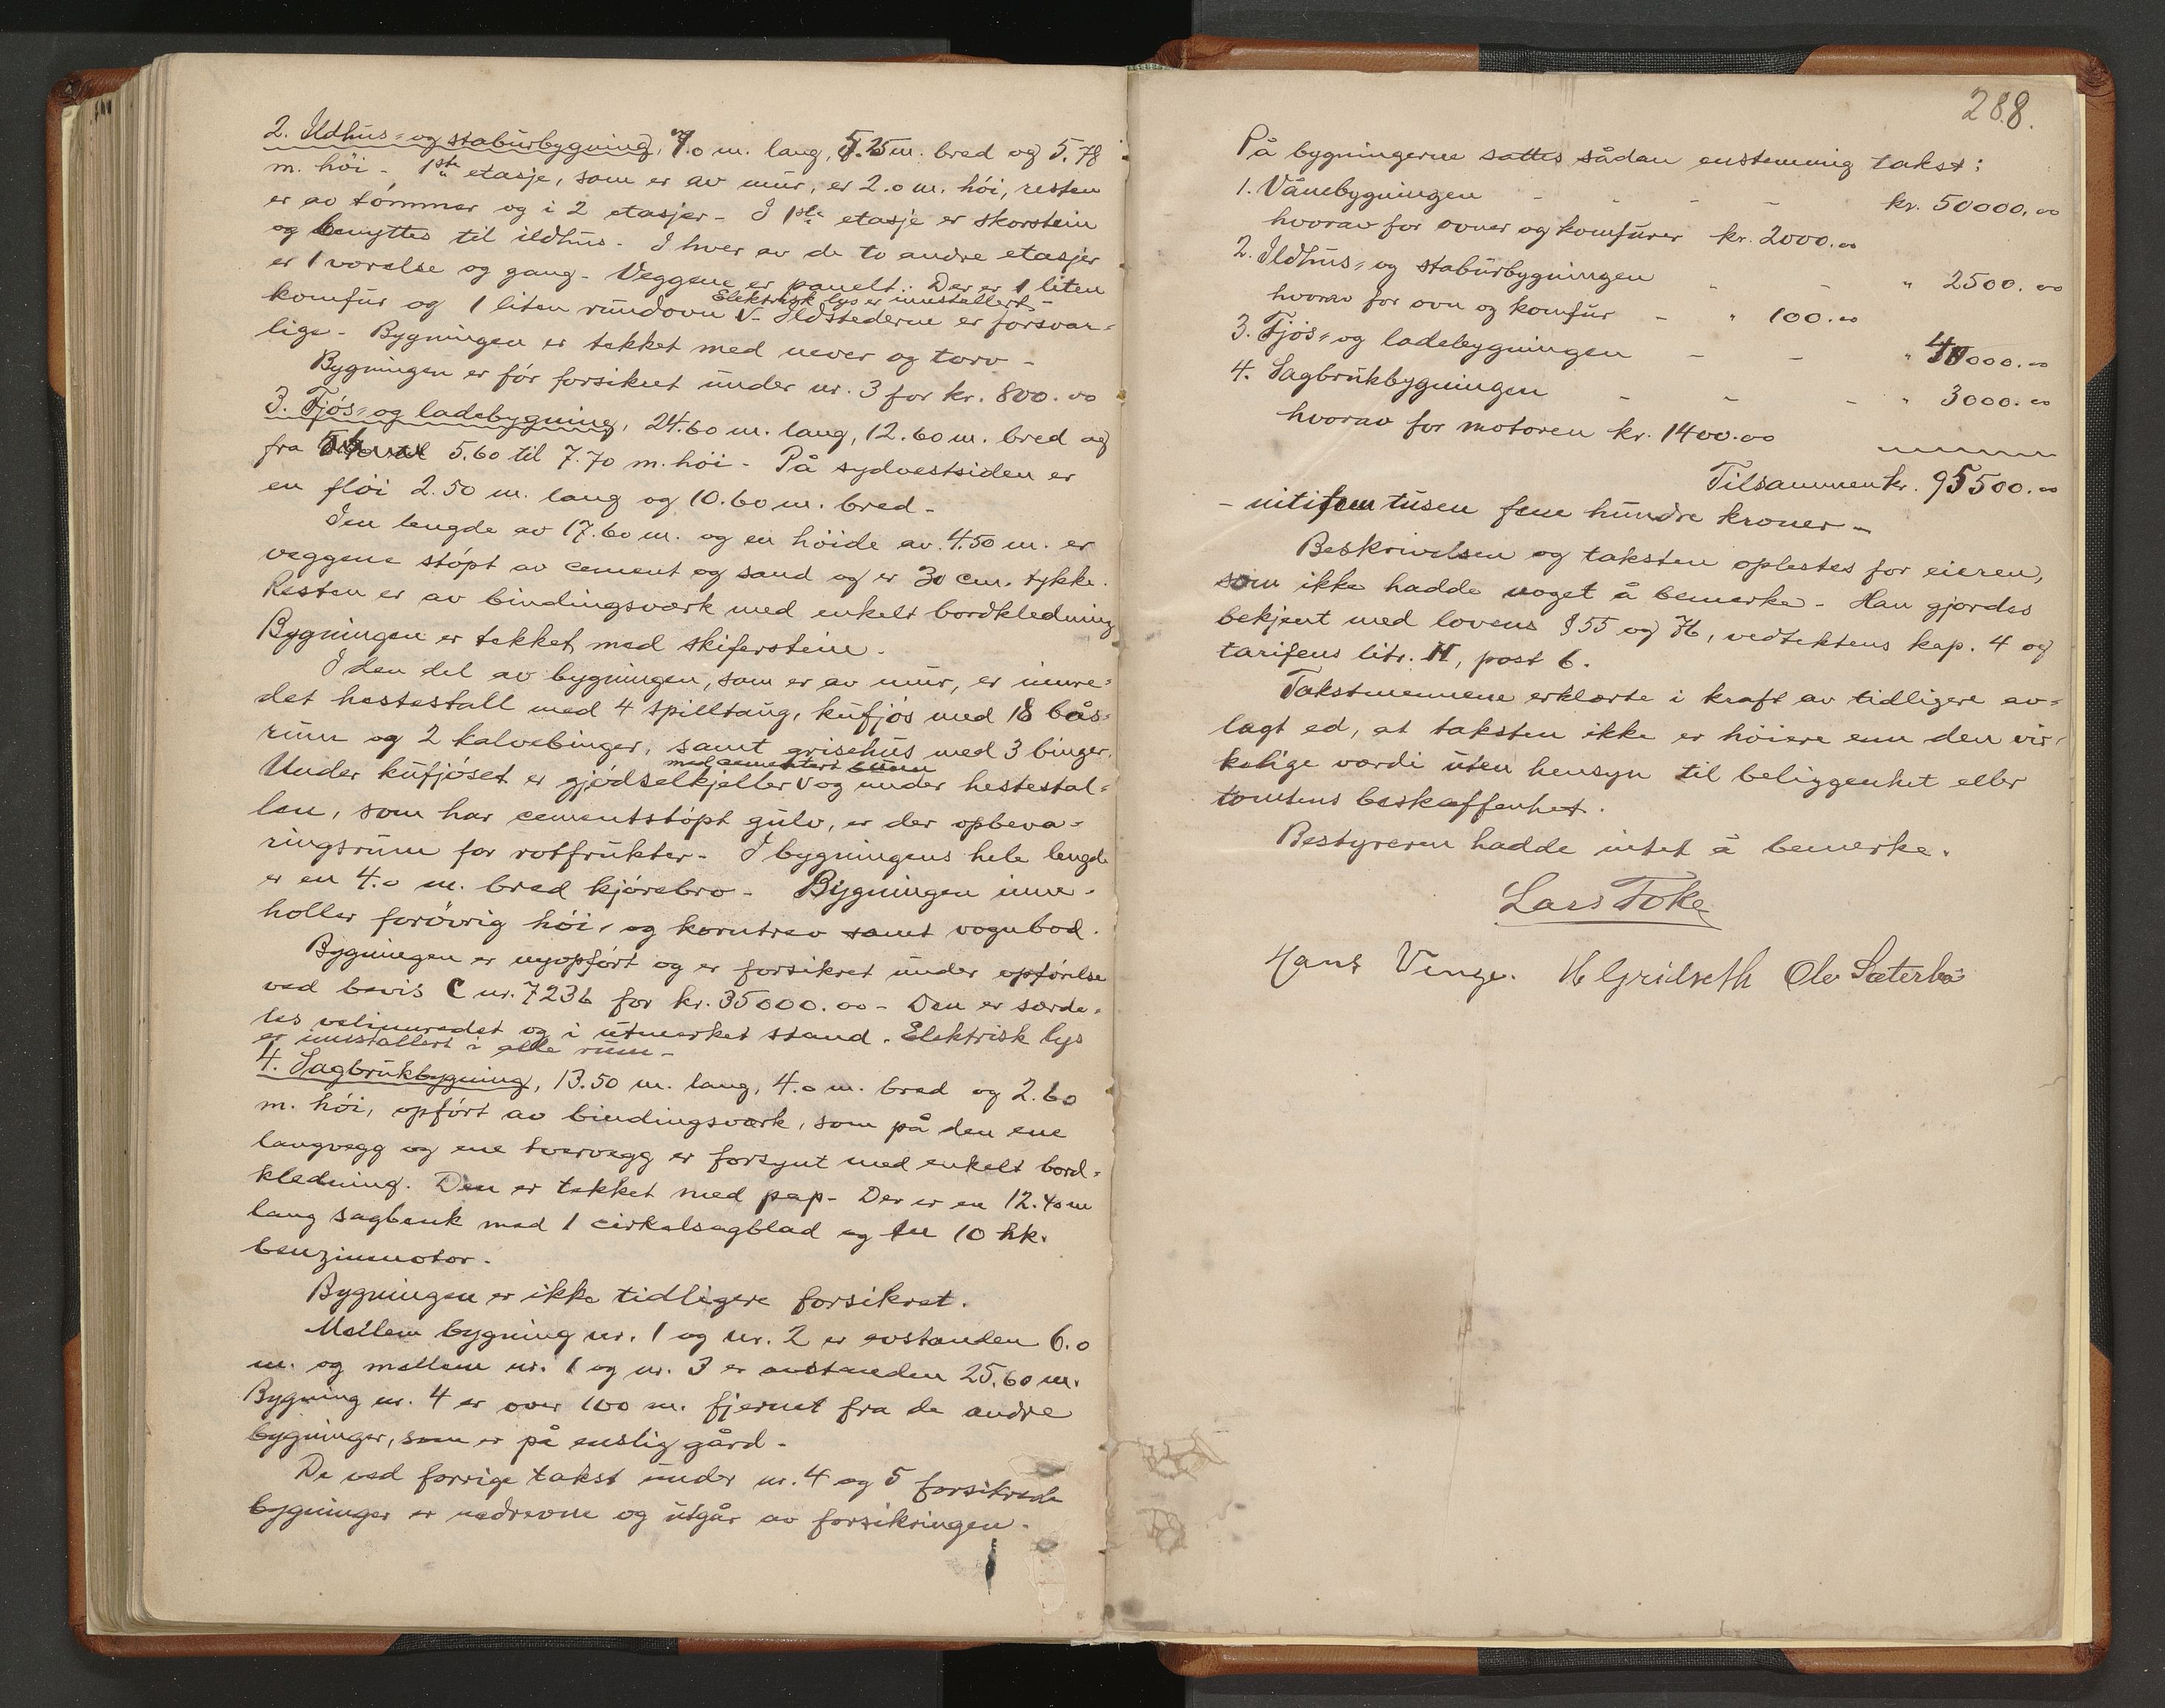 2. Ildhus- og stabursbygning, 7.0 m. lang, 5.25 m. bred og 5.78
m. høi - 1ste etasje, som er av mur, er 2.0 m. høi, resten
er av tømmer og i 2 etasjer - I 1ste etasje er skorstein
og benyttes til ildhus - I hver av de to andre etasjer
er 1 værelse og gang - Veggene er panelt. Der er 1 liten
Elektrisk lys er innstallert -
komfur og 1 liten rundovn V - Ildstederne er forsvar-
lige - Bygningen er tekket med never og torv -
Bygningen er før forsikret under nr. 3 for kr. 800.00
3. Fjøs- og ladebygning, 24.60 m. lang, 12.60 m. bred og
fra 5.60 til 7.70 m. høi - På sydvestsiden er
en fløi 2.50 m. lang og 10.60 m. bred -
I en lengde av 17.60 m. og en høide av 4.50 m. er
veggene støpt av cement og sand og er 30 cm. tykke.
Resten er av bindingsværk med enkelt bordkledning
Bygningen er tekket med skiferstein.
I den del av bygningen, som er av mur, er innre-
det hestestall med 4 spilltaug, kufjøs med 18 bås-
rum og 2 kalvebinger, samt grisehus med 3 binger.
med cementert bunn
Under kufjøset er gjødselkjeller V og under hestestal-
len, som har cementstøpt gulv, er der opbeva-
ringsrum for rotfrukter - I bygningens hele lengde
er en 4.0 m. bred kjørebro - Bygningen inne-
holler forøvrig høi- og korntrev samt vognbod.
Bygningen er nyopført og er forsikret under opførelse
ved bevis C nr. 7236 for kr. 35000.00 - Den er særde-
les velinnredet og i utmerket stand. Elektrisk lys
er innstallert i alle rum -
4. Sagbrukbygning, 13.50 m. lang, 4.0 m. bred og 2.60
m. høi, opført av bindingsværk, som på den ene
langvegg og ene tvervegg er forsynt med enkelt bord-
kledning. Den er tekket med pap - Der er en 12.40 m
lang sagbenk med 1 cirkelsagblad og en 10 hk.
benzinmotor.
Bygningen er ikke tidligere forsikret.
Mellem bygning nr. 1 og nr. 2 er avstanden 6.0
m. og mellem nr. 1 og nr. 3 er avstanden 25.60 m.
Bygning nr. 4 er over 100 m. fjernet fra de andre
bygninger, som er på enslig gård -
De ved forrige takst under nr. 4 og 5 forsikrede
bygninger er nedrevne og utgår av forsikringen -
288.
På bygningerne sattes sådan enstemmig takst:
1. Vånebygningen - - - - kr. 50000.00
hvorav for ovner og komfurer kr. 2000.00
2. Ildhus- og stabursbygningen - - " 2500.00
hvorav for ovn og komfur - " 100.00
3. Fjøs- og ladebygningen - - " 40000.00
4. Sagbrukbygningen - - - " 3000.00
hvorav for motoren kr. 1400.00
Tilsammen kr. 95500.00
- nitifem tusen fem hundre kroner -
Beskrivelsen og taksten oplestes for eieren,
som ikke hadde noget å bemerke - Han gjordes
bekjent med lovens § 55 og 76, vedtektens kap. 4 og
tarifens litr. H, post 6.
Takstmennene erklærte i kraft av tidligere av-
lagt ed, at taksten ikke er høiere enn den vir-
kelige værdi uten hensyn til beliggenhet eller
tomtens beskaffenhet.
Bestyreren hadde intet å bemerke.
Lars Foke
Hans Venge. Ole Sæterbø